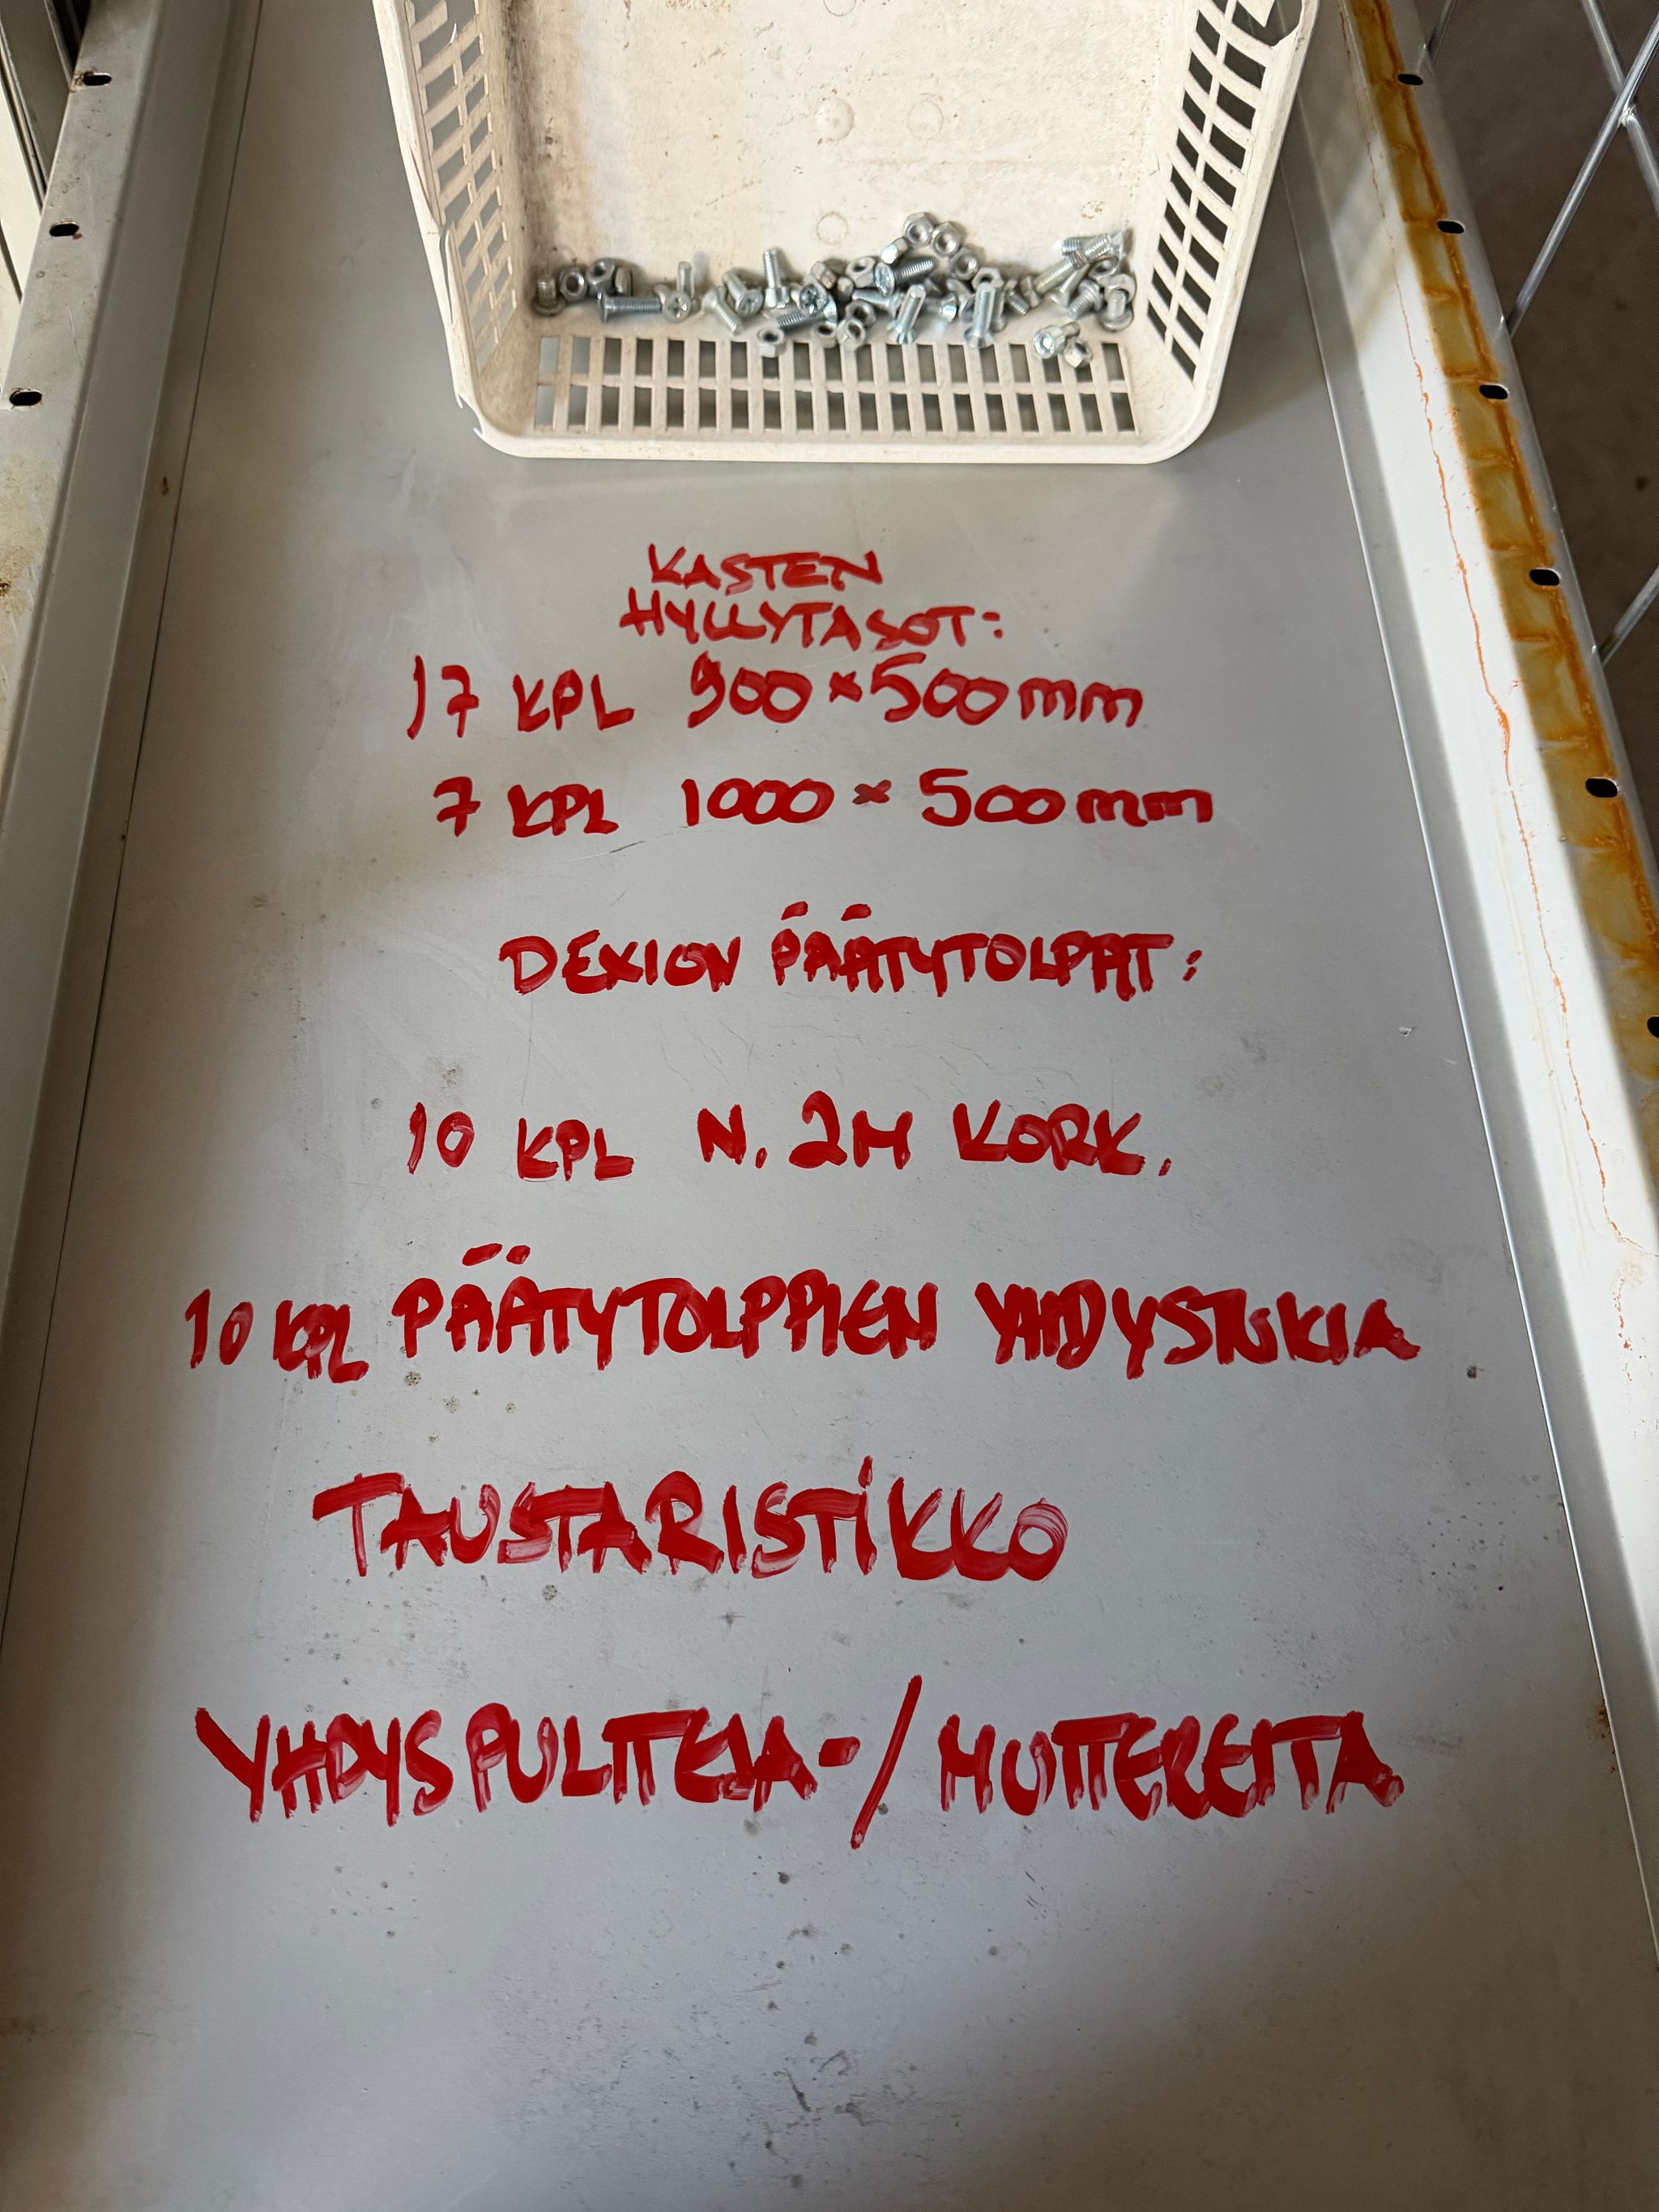 KASTEN
HYLLYTASOT:
17 KPL 900 x 500 mm
7 KPL 1000 x 500 mm
DEXION PÄÄTYTOLPAT:
10 KPL N. 2M KORK.
10 KPL PÄÄTYTOLPPIEN YHDYSTUKIA
TAUSTARISTIKKO
YHDYSPULTTEJA-/MUTTEREITA